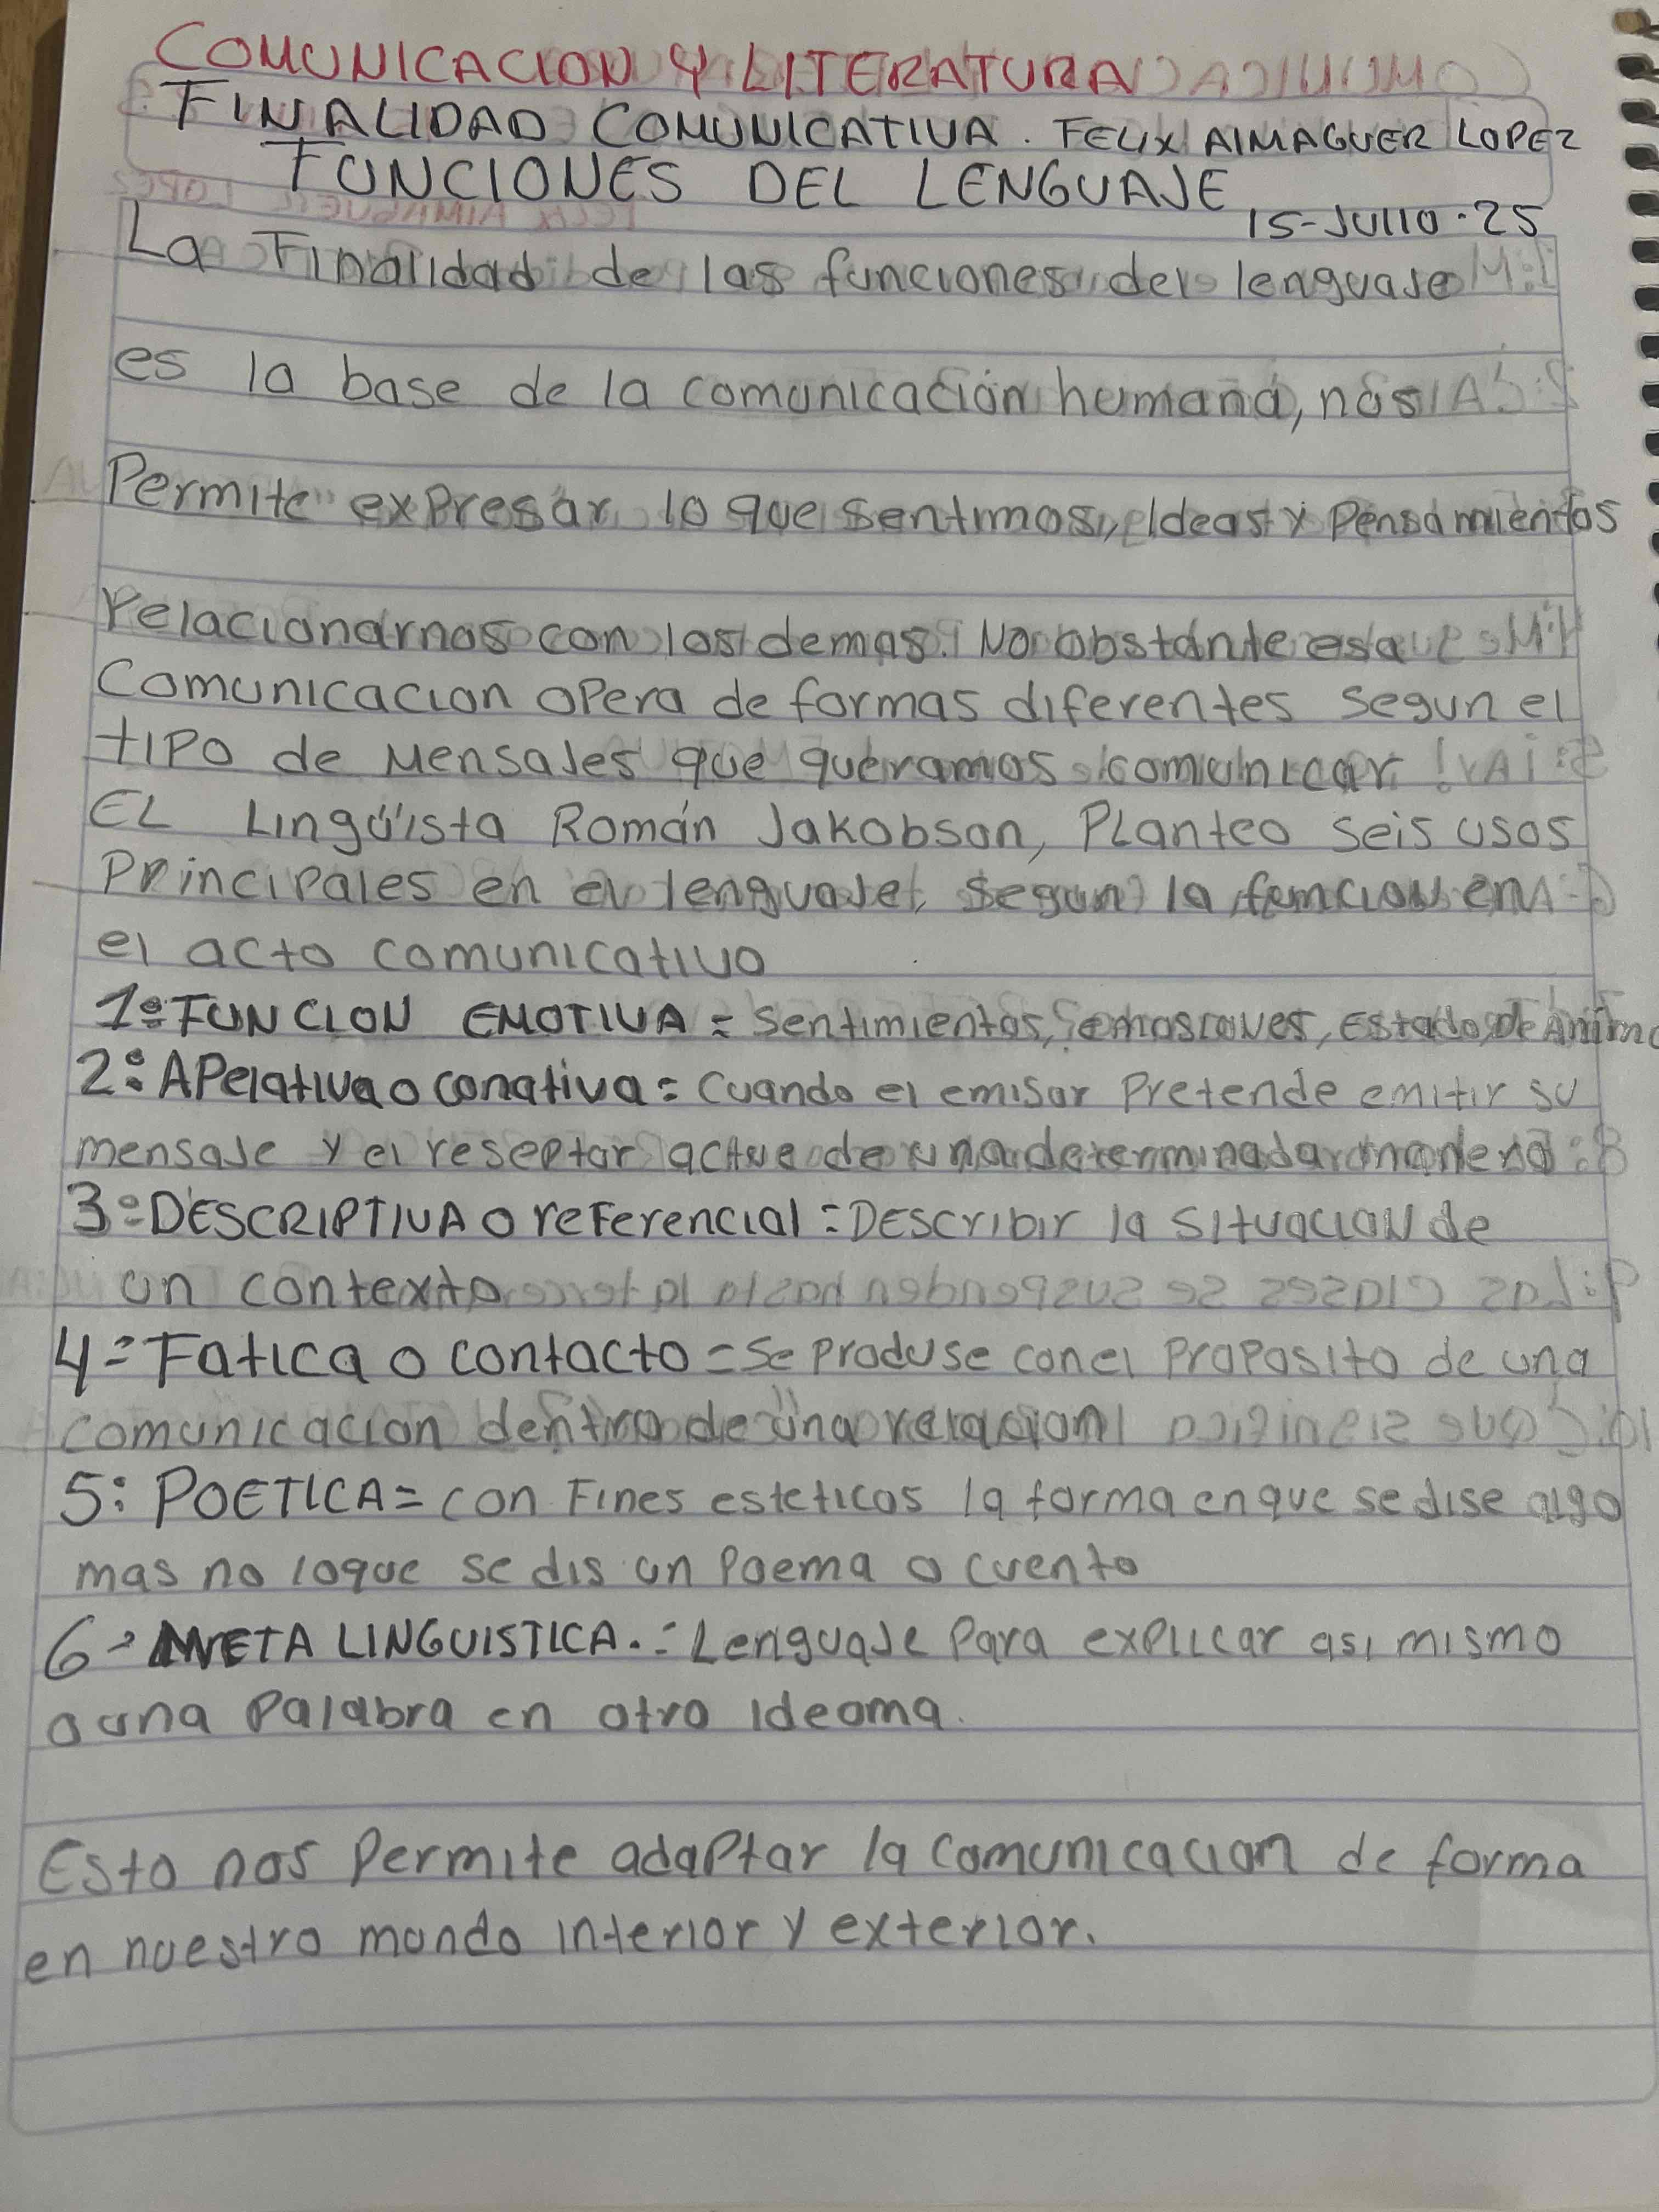 COMUNICACION Y LITERATURA
FINALIDAD COMUNICATIVA. FELIX AlMAGUER LOPEZ
FUNCIONES DEL LENGUAJE
15-JULIO-25
La Finalidad de las funciones del lenguaje
es la base de la comunicación humana, nos
Permite expresar lo que sentimos, Ideas y Pensamientos
relacionarnos con los demas. No obstante esa
Comunicacion opera de formas diferentes segun el
tipo de Mensajes que queramos comunicar
EL Lingüista Román Jakobson, Planteo seis usos
Principales en el lenguaje, segun la funcion en
el acto comunicativo
1º FUNCION EMOTIVA = sentimientos, emosiones, Estado de Animo
2º: APelativa o conativa = Cuando el emisor Pretende emitir su
mensaje y el reseptor actue de una determinada manera
3º DESCRIPTIVA o referencial = Describir la situacion de
un contexto
4= Fatica o contacto = Se produse con el Proposito de una
comunicacion dentro de una relacion
5: POETICA = con Fines esteticos la forma en que se dise algo
mas no loque se dis un Poema o cuento
6- META LINGUISTICA.= Lenguaje Para explicar asi mismo
o una Palabra en otro Ideoma.
Esto nos Permite adaptar la comunicacion de forma
en nuestro mundo interior y exterior.